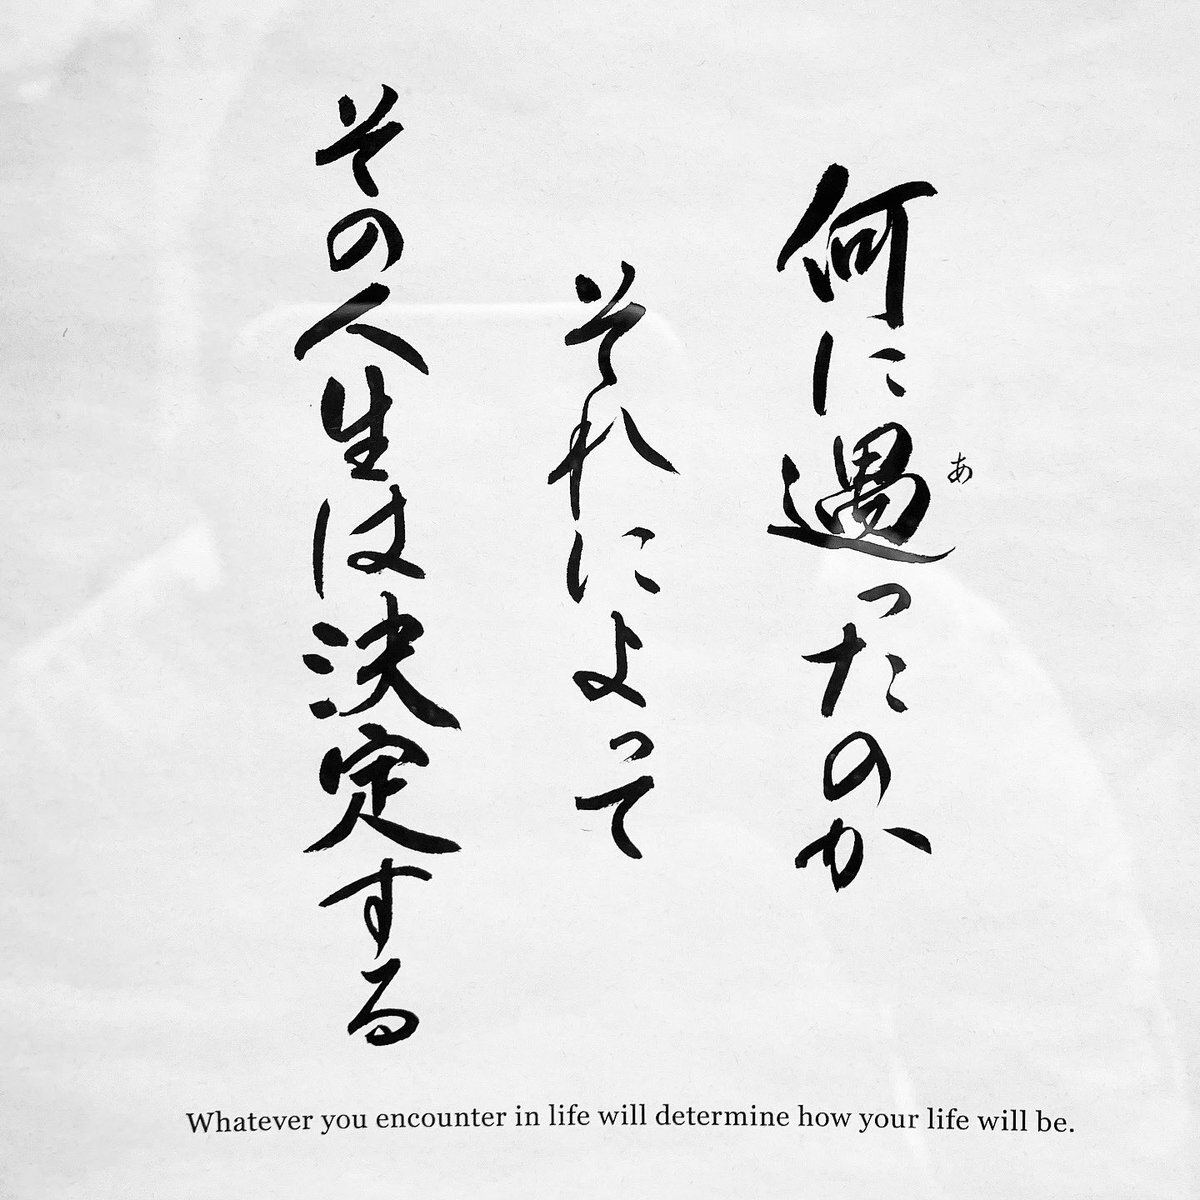 何に遇ったのか
あ
それによって
その人生は決定する
Whatever you encounter in life will determine how your life will be.